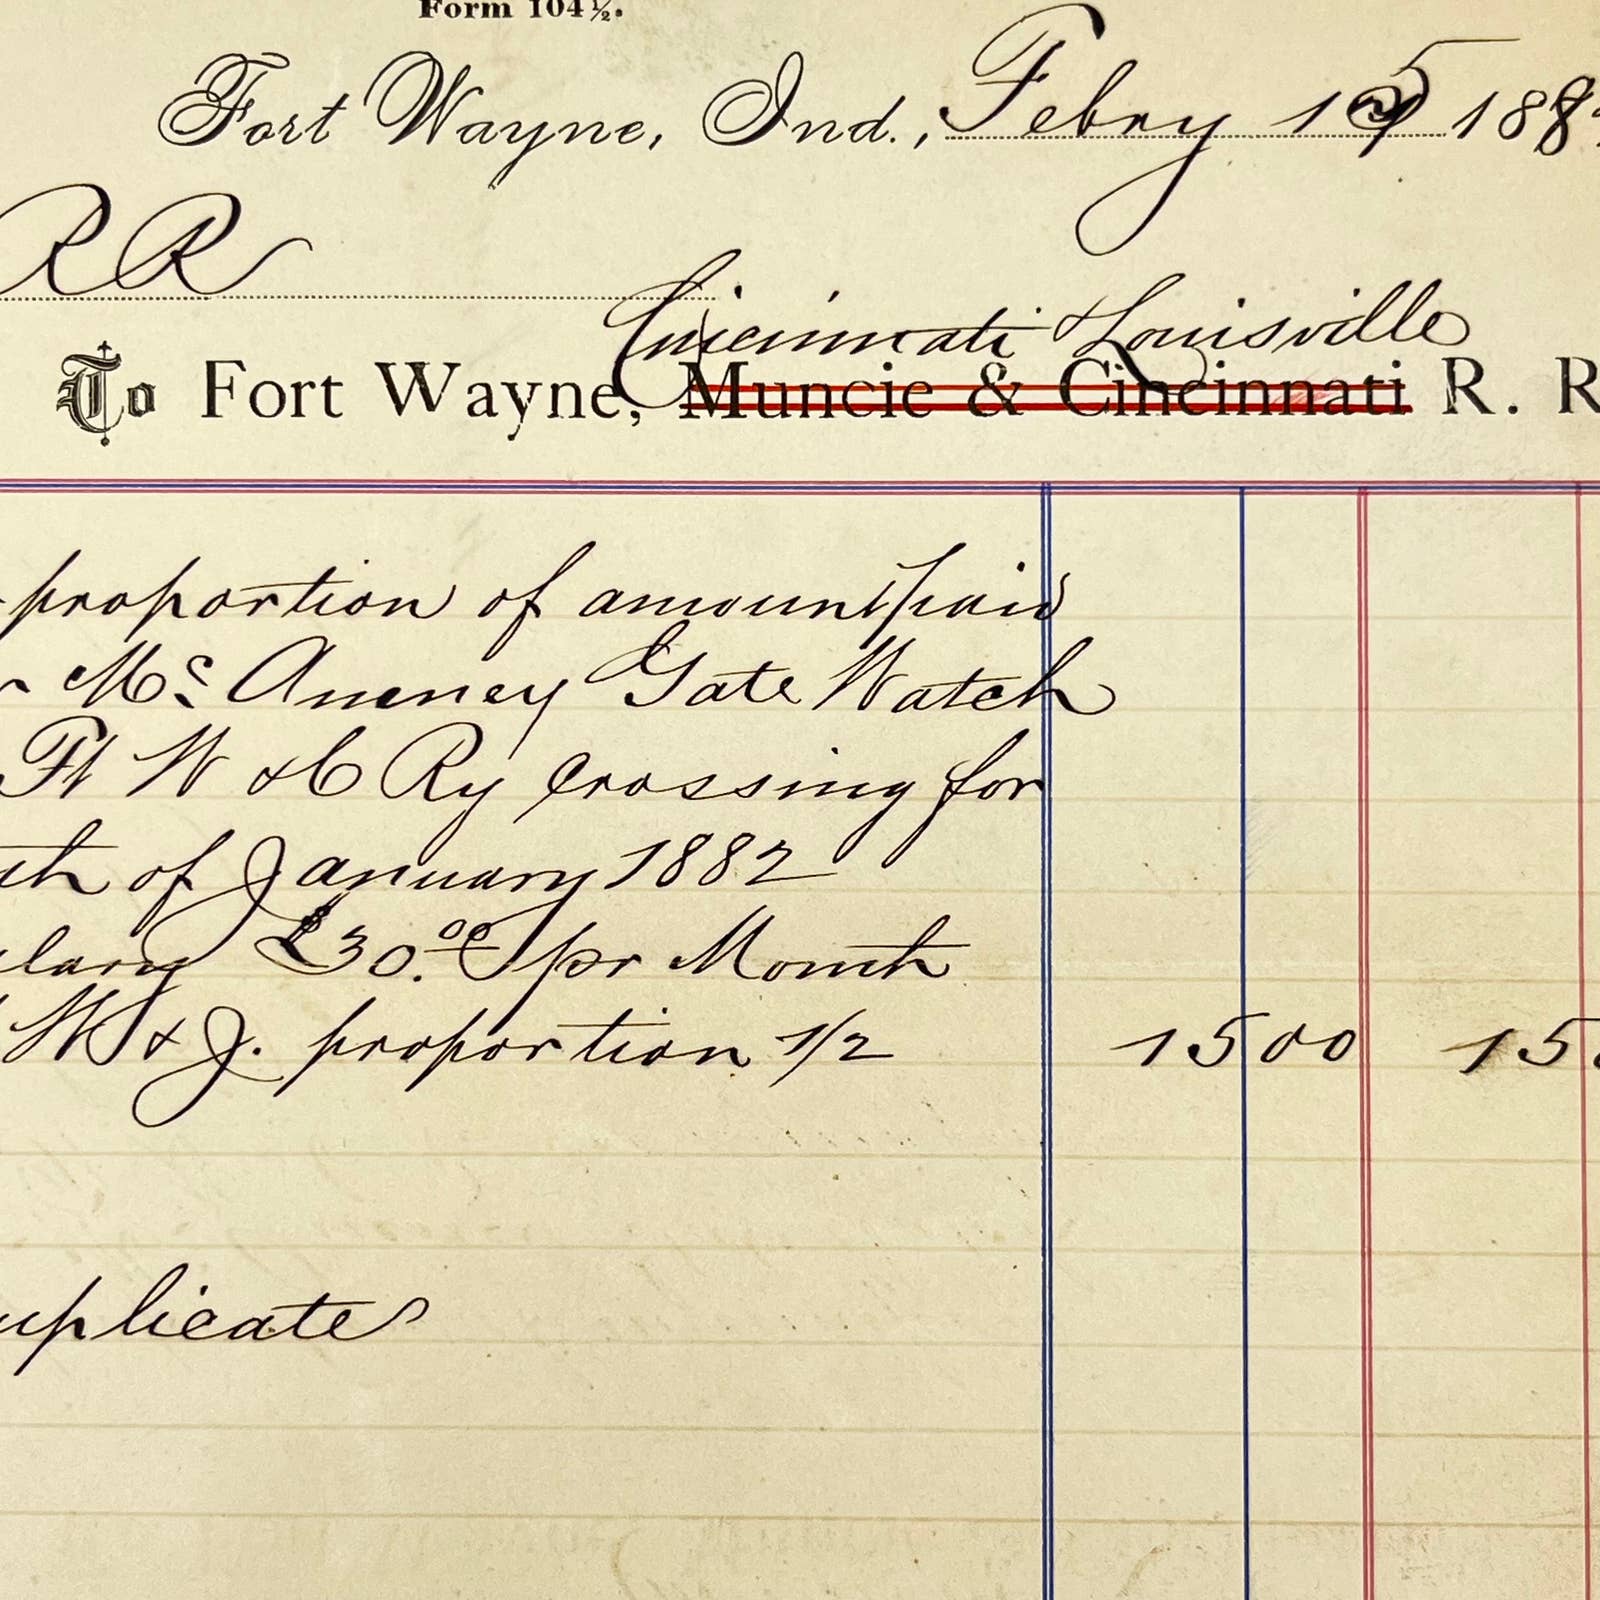 Form 104½.
Fort Wayne, Ind., Febry 15 188
RR
Cincinnati & Louisville
To Fort Wayne, Muncie & Cincinnati R. R
proportion of amount paid
Mc Aneney Gate Watch
Ft W & C Ry Crossing for
th of January 1882
lary $30.00 pr Month
W & J. proportion 1/2 15 00 15
uplicate